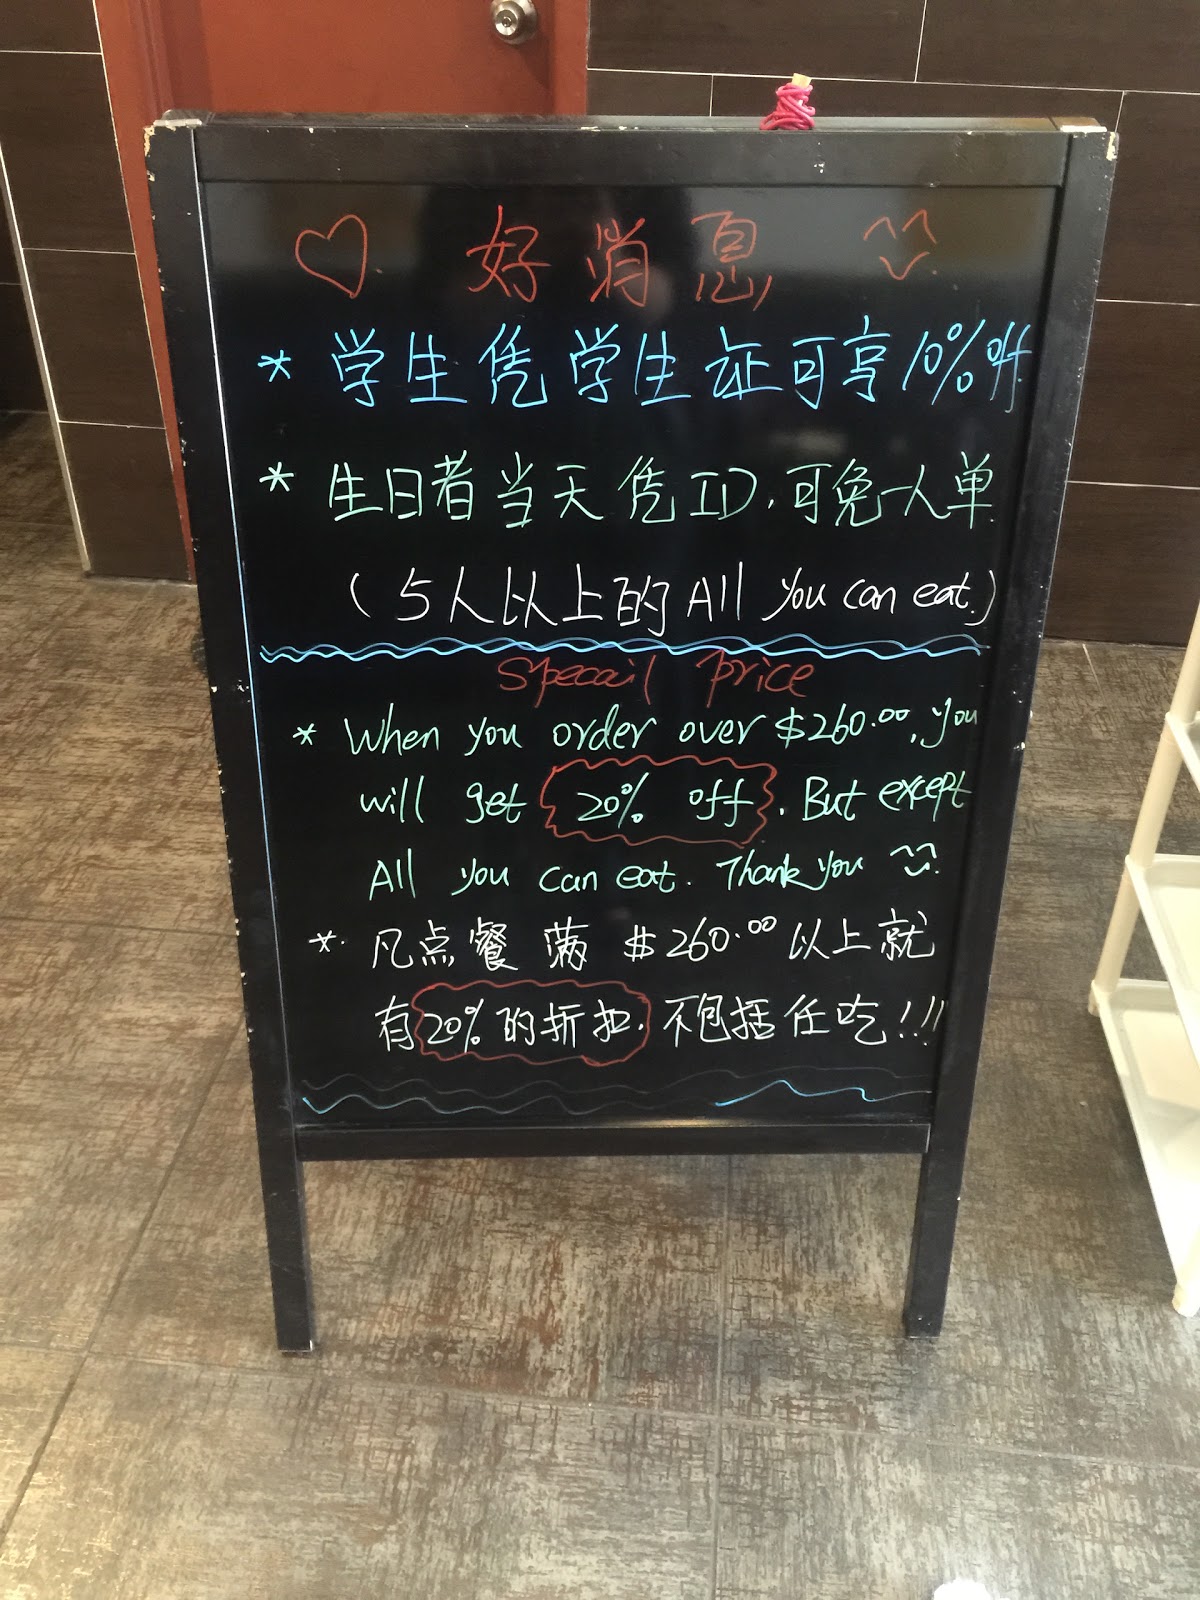 好消息
* 学生凭学生证可享10%off
* 生日者当天凭ID,可免一人单
(5人以上的All you can eat.)
specail price
* When you order over $260.00, you
will get 20% off. But except
All you can eat. Thank you
*. 凡点餐满$260.00以上就
有20%的折扣.不包括任吃!!!